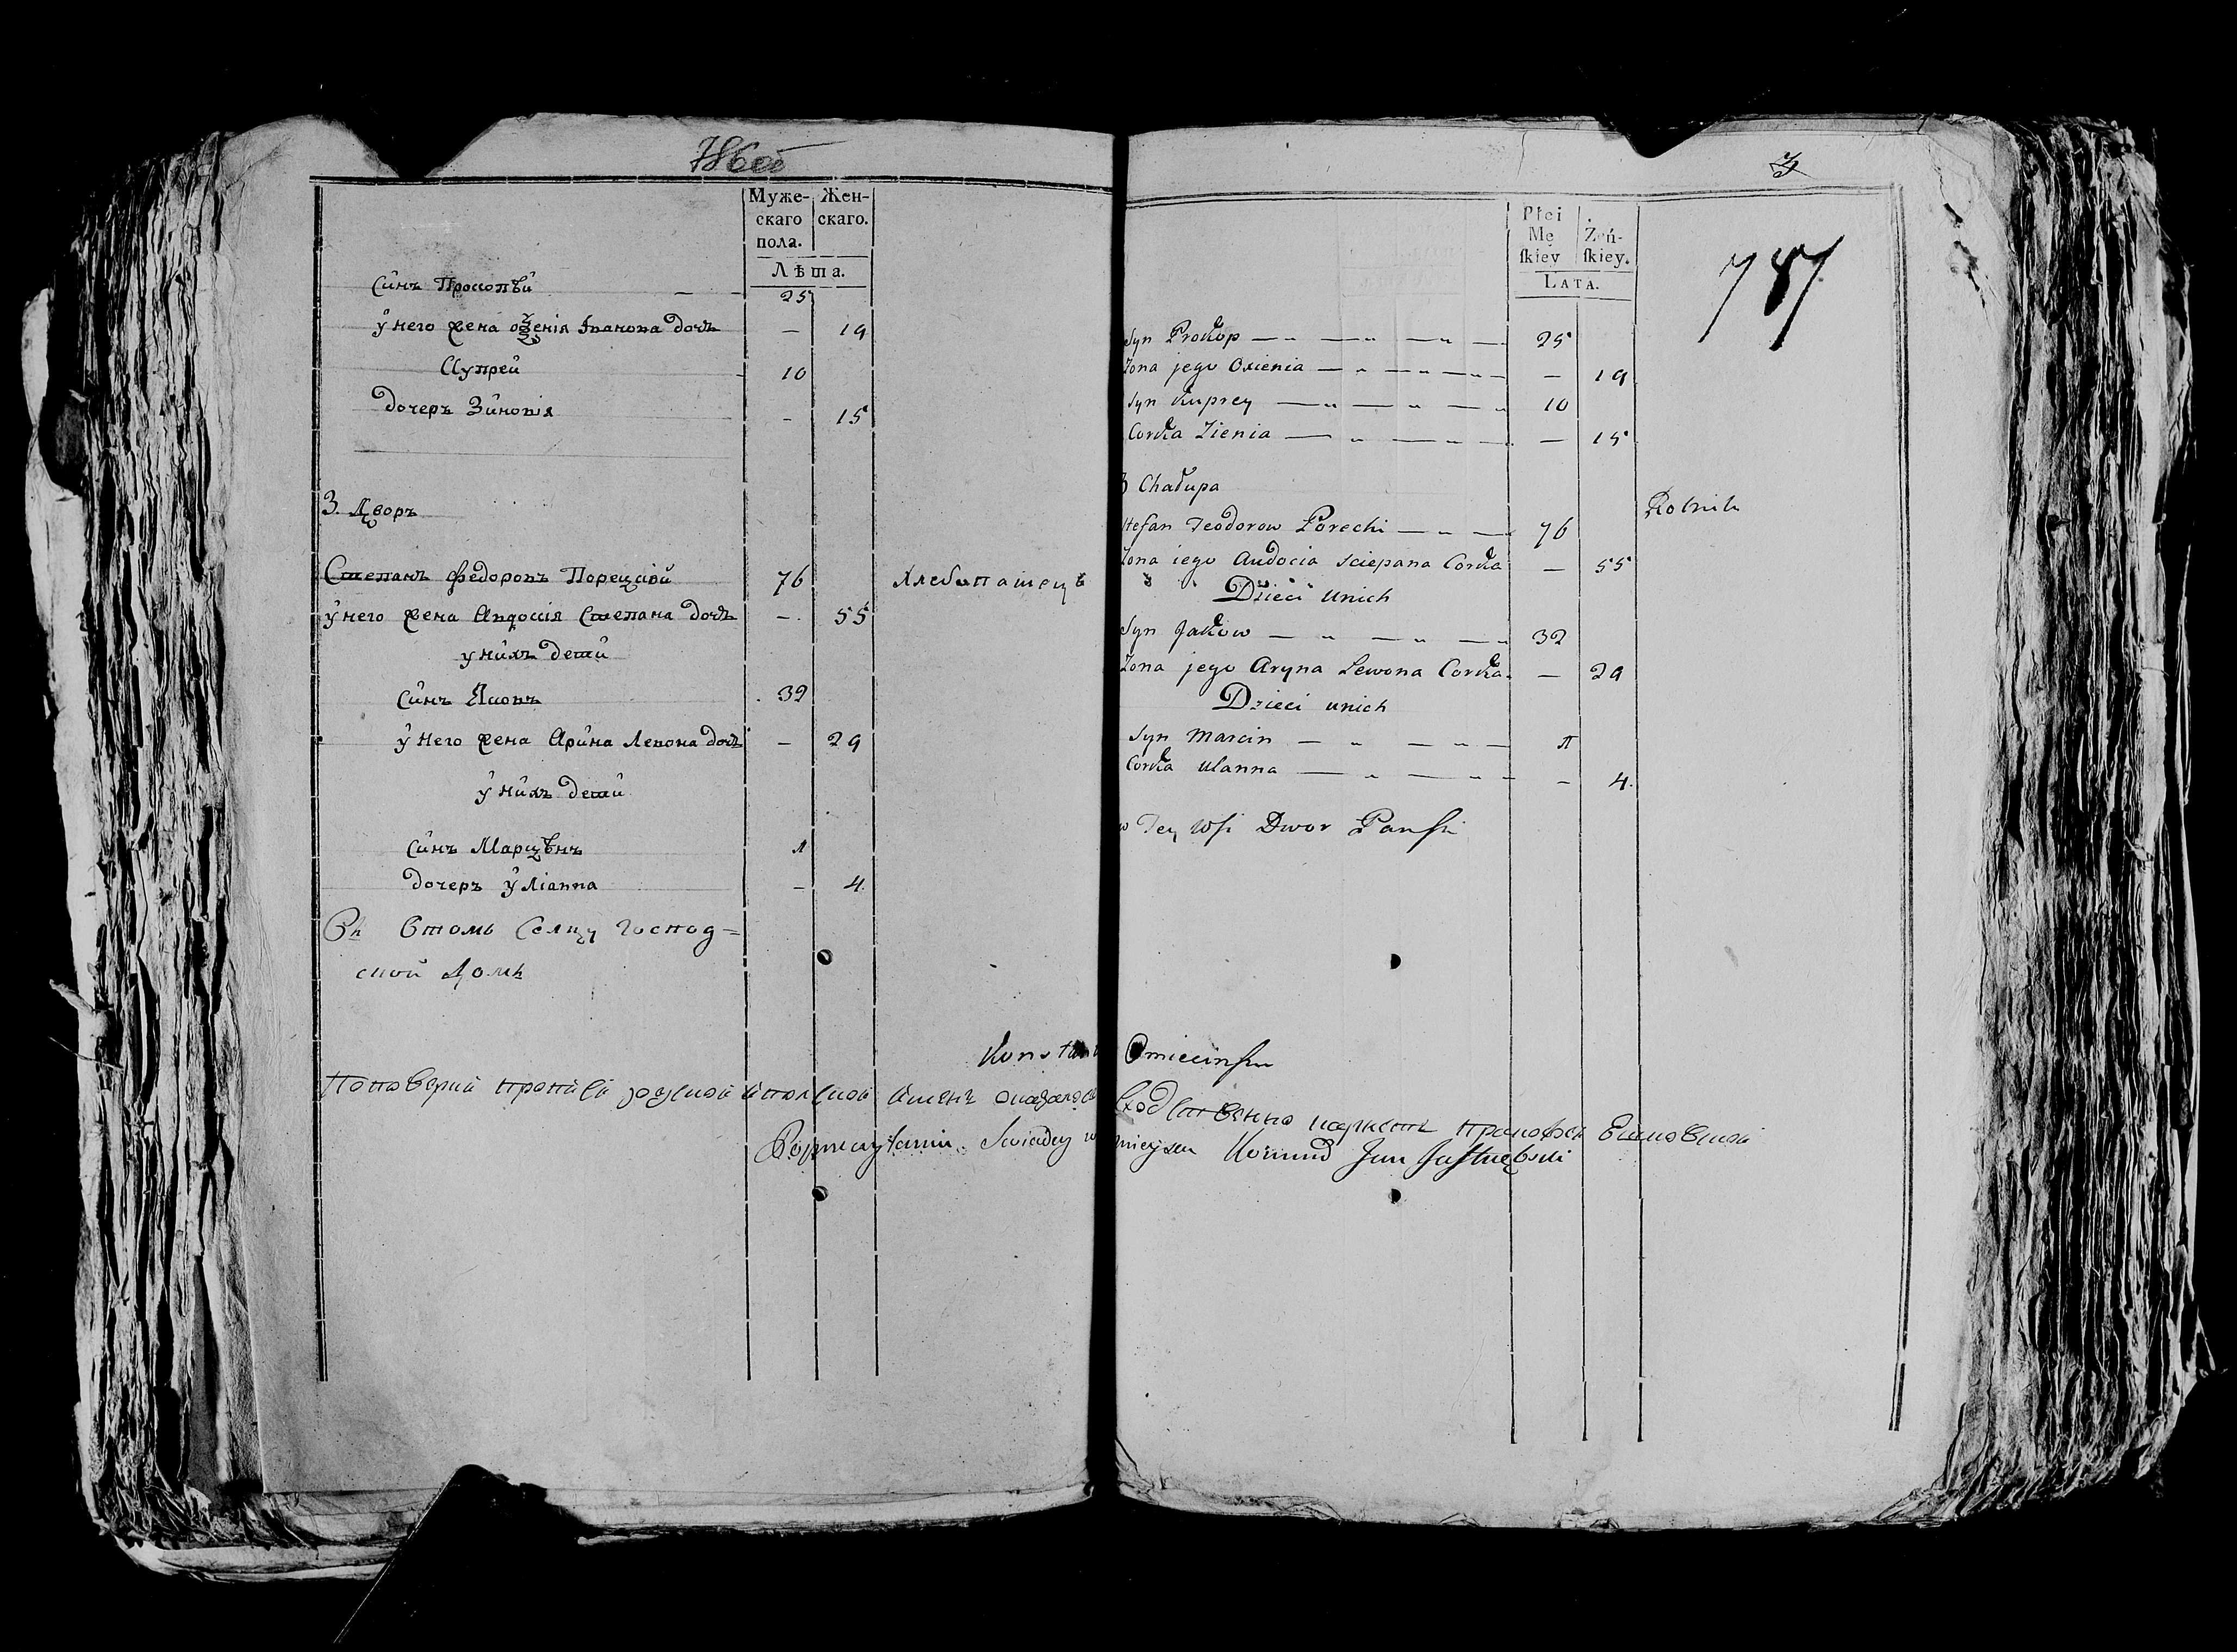 786об
Муже-
скаго
пола.
Жен-
скаго.
Лѣта.
Синъ Прокопѣй — — 25
у него жена Оѯенія Іванова дочъ — 19
Купрей 10
дочеръ Зиновія - 15
3. Дворъ
Степанъ Федоровъ Порецкій 76 Хлебопашецъ
у него жена Авдосія Степана дочъ — 55
у нихъ дети
Синъ Яковъ 32
у него жена Арина Левона дочъ — 29
у нихъ дети
Синъ Марцѣнъ л
дочеръ уліанна — 4
въ Втомъ Селцу Господ=
ской Домъ
Konstan
787
Płci
Mę
ſkiey
Żeń-
ſkiey.
LATA.
Syn Prokop — „ — „ — „ — 25
Zona jego Oxienia — „ — „ — „ — — 19
Syn Kuprey — „ — „ — „ 10
Corka Zienia — „ — „ — 15
3 Chałupa
Stefan Teodorow Porecki — „ — 76 Rolnik
Zona iego Audocia Sciepana Corka — 55
Dzieci unich
Syn Jakow — „ — „ — 32
Zona jego Aryna Lewona Corka — 29
Dzieci unich
Syn Marcin — „ — „ — л
Corka Ulanna — „ — „ — 4.
w Tey Wsi Dwor Panſki
Сходственно
Swiadczy w mieyscu Jan